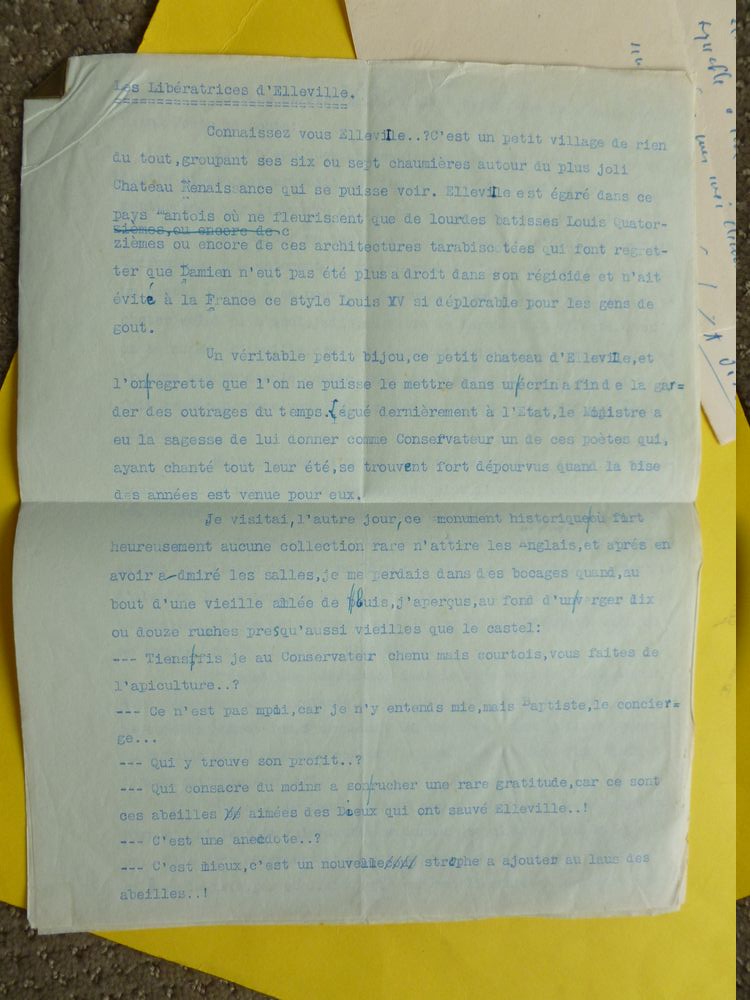 Les Libératrices d'Elleville.
============================
Connaissez vous Elleville..?C'est un petit village de rien
du tout,groupant ses six ou sept chaumières autour du plus joli
Chateau Renaissance qui se puisse voir. Elleville est égaré dans ce
pays Mantois où ne fleurissent que de lourdes batisses Louis Quator-
zièmes,ou encore de c
zièmes ou encore de ces architectures tarabiscotées qui font regret-
ter que Damien n'eut pas été plus adroit dans son régicide et n'ait
évité à la France ce style Louis XV si déplorable pour les gens de
gout.
Un véritable petit bijou,ce petit chateau d'Elleville,et
l'on regrette que l'on ne puisse le mettre dans un écrin afin de la gar=
der des outrages du temps.Légué dernièrement à l'Etat,le Ministre a
eu la sagesse de lui donner comme Conservateur un de ces poètes qui,
ayant chanté tout leur été,se trouvent fort dépourvus quand la bise
des années est venue pour eux.
Je visitai,l'autre jour,ce monument historique où fort
heureusement aucune collection rare n'attire les Anglais,et aprés en
avoir admiré les salles,je me perdais dans des bocages quand,au
bout d'une vieille allée de buis,j'aperçus,au fond d'un verger dix
ou douze ruches presqu'aussi vieilles que le castel:
--- Tiens fis je au Conservateur chenu mais courtois,vous faites de
l'apiculture..?
--- Ce n'est pas moi,car je n'y entends mie,mais Baptiste,le concier=
ge...
--- Qui y trouve son profit..?
--- Qui consacre du moins a son rucher une rare gratitude,car ce sont
ces abeilles aimées des Dieux qui ont sauvé Elleville..!
--- C'est une anecdote..?
--- C'est mieux,c'est un nouvelle strophe a ajouter au laus des
abeilles..!